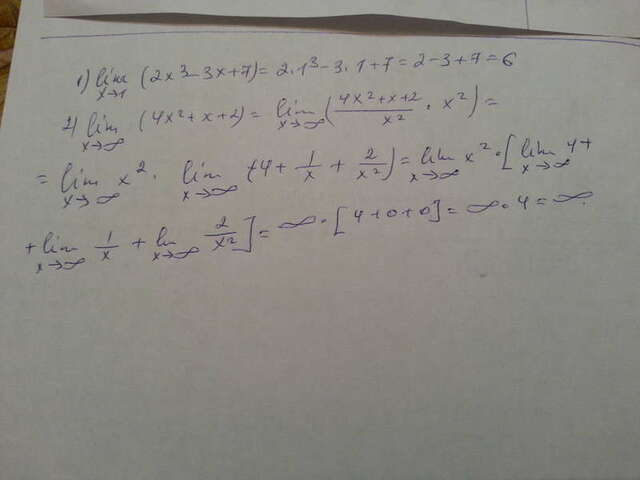 1) lim x→1 (2x³-3x+7) = 2·1³-3·1+7 = 2-3+7 = 6
2) lim x→∞ (4x²+x+2) = lim x→∞ (4x²+x+2/x² · x²) =
= lim x→∞ x² · lim x→∞ (4 + 1/x + 2/x²) = lim x→∞ x² · [lim x→∞ 4+
+ lim x→∞ 1/x + lim x→∞ 2/x²] = ∞ · [4+0+0] = ∞·4 = ∞.